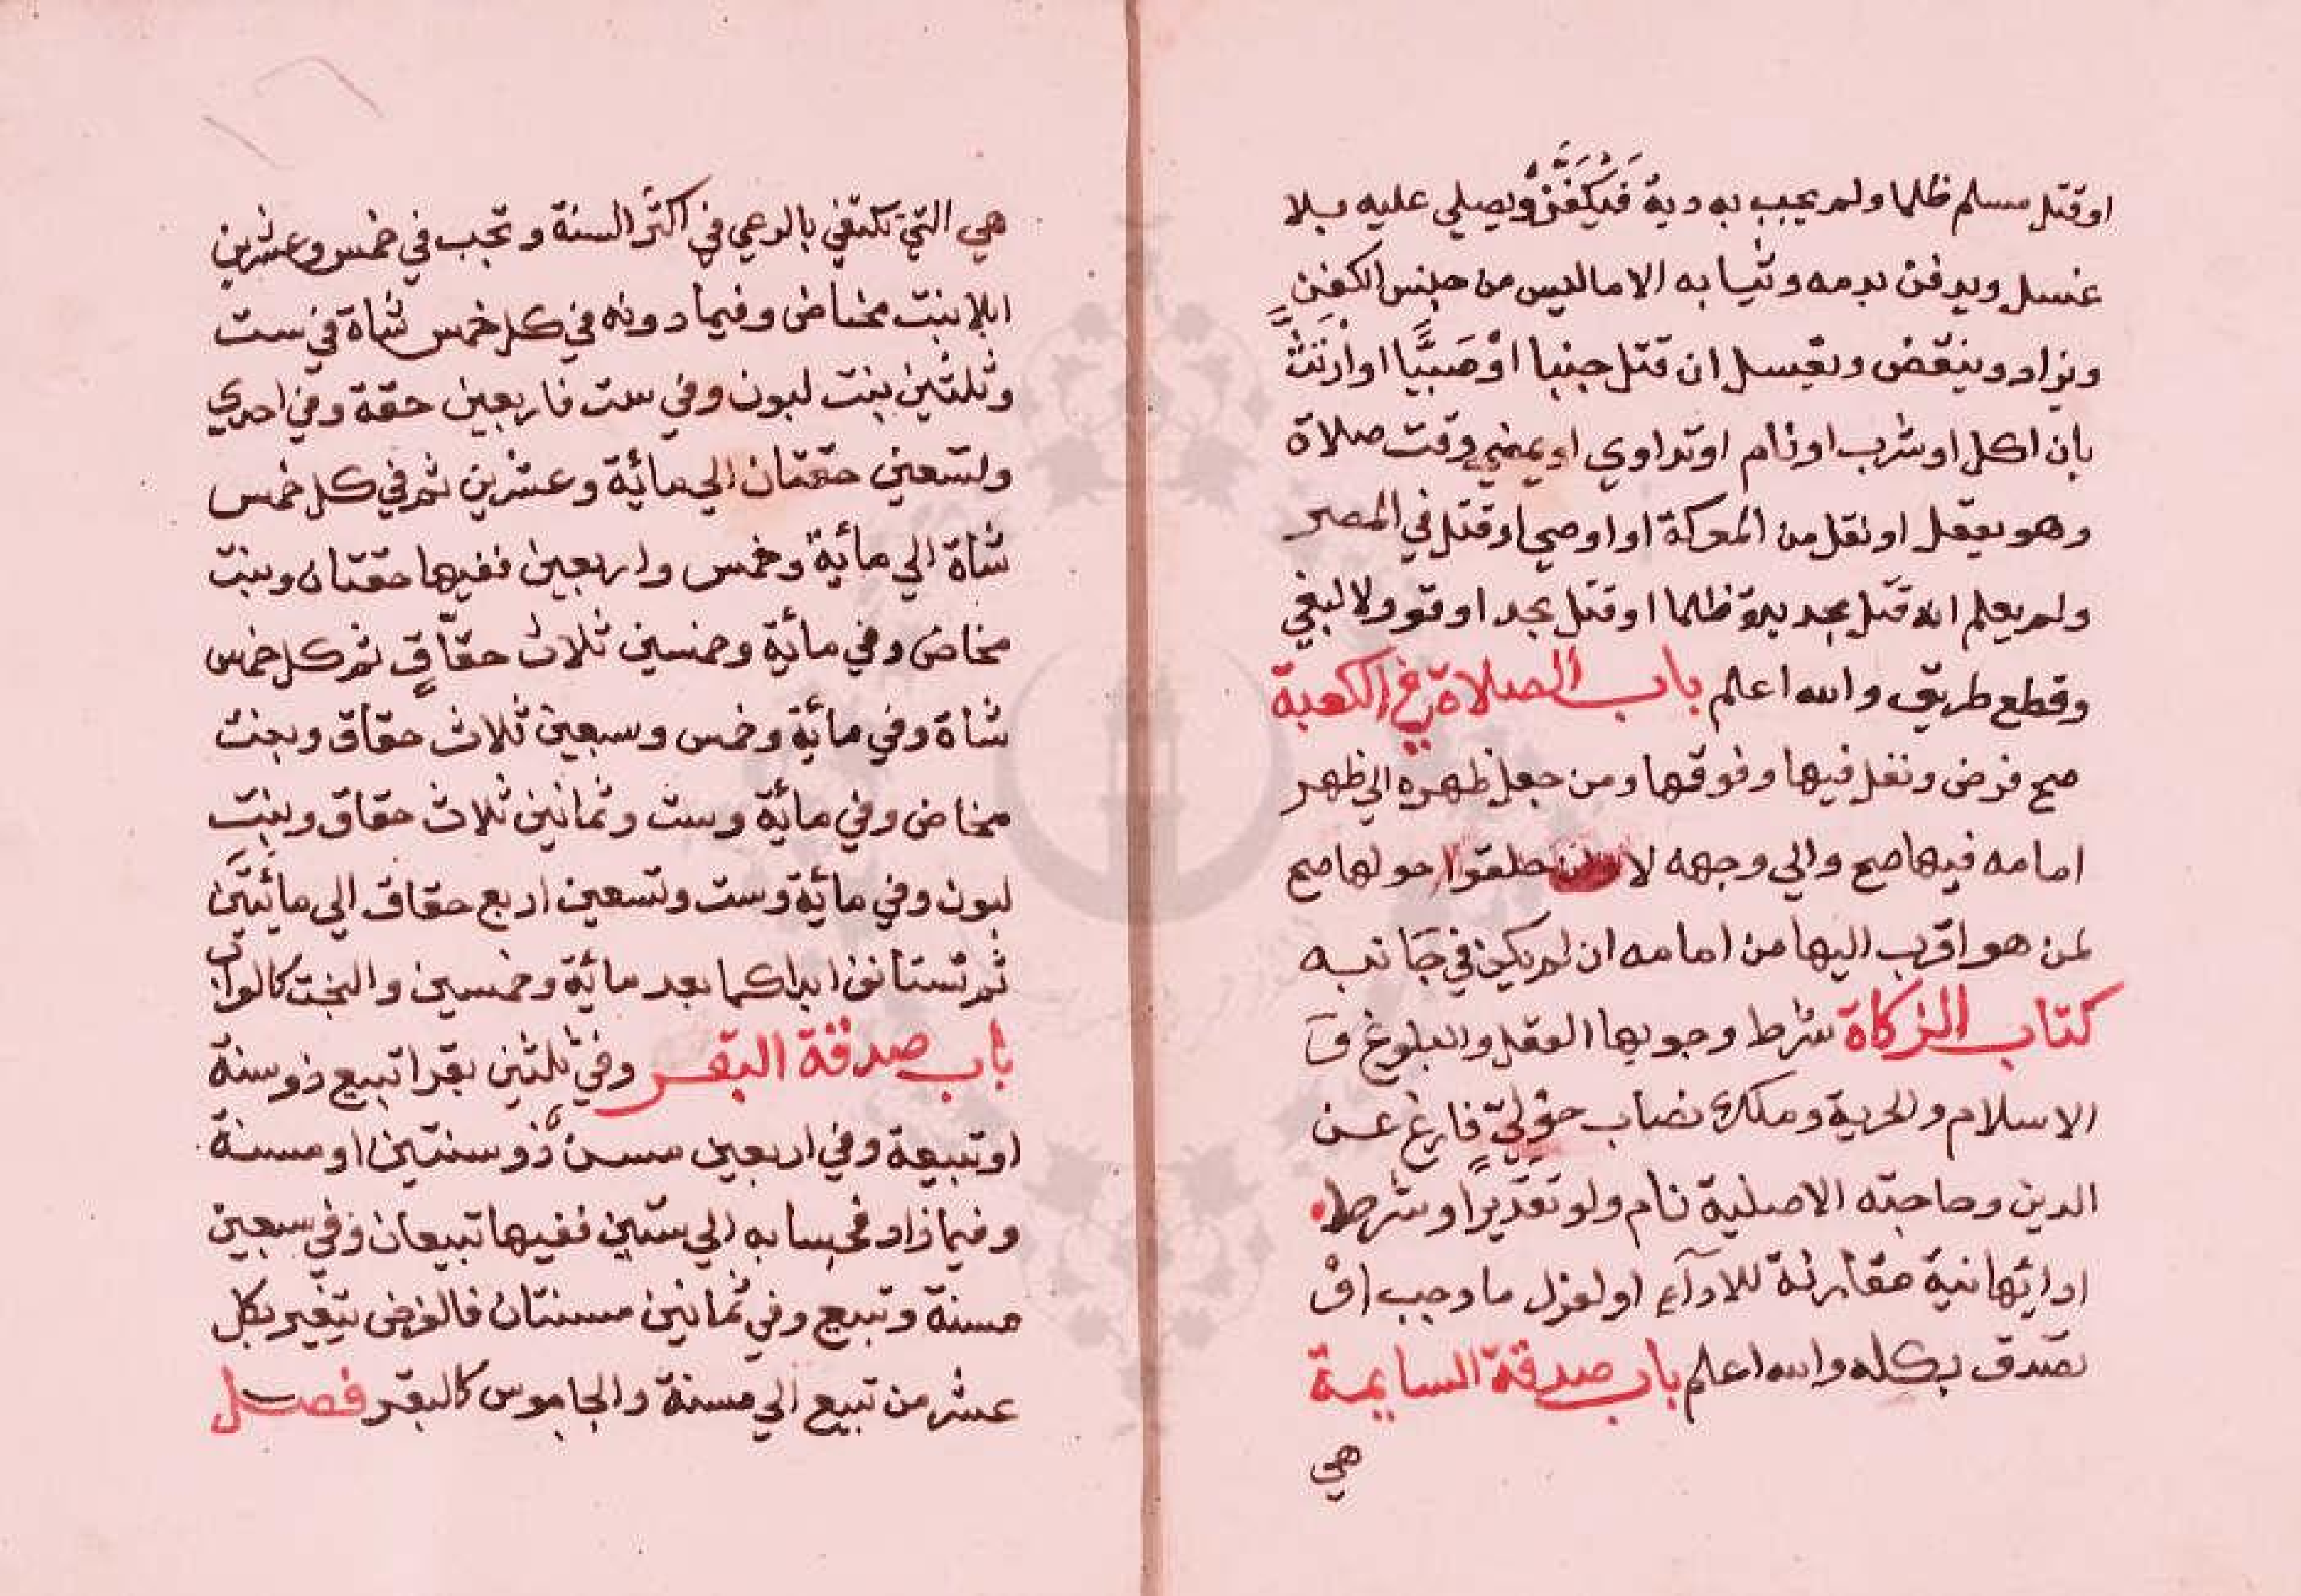 او قتل مسلم ظلما ولم يجب به دية فَيُكَفَّنُ ويصلي عليه بلا
غسل ويدفن بدمه وثيابه الا ماليس من جنس الكفنِ
ويزاد وينقض ويغسل ان قتل جنبا اوْ صَبيًّا او ارْتَثَّ
بان اكل او شرب او نام او تداوي او يمضي وقت صلاة
وهو يعقل او نقل من المعركة او اوصي او قتل في المصر
ولم يعلم انه قتل بحديدة ظلما او قتل بحد او قود لا لبغي
وقطع طريق والله اعلم باب الصلاة في الكعبة
صح فرض ونفل فيها وفوقها ومن جعل ظهره الي ظهر
امامه فيها صح والي وجهه لا وان حلقوا حولها صح
لمن هو اقرب اليها من امامه ان لم يكن في جَانبه
كتاب الزكاة شرط وجوبها العقل والبلوغ وَ
الاسلام والحرية وملك نصاب حوْليٍّ فارغ عن
الدين وحاجته الاصلية نام ولو تقديرا وشرط
ادائها نية مقارنة للادآء او لعزل ما وجب اوْ
تصدق بكله والله اعلم باب صدقة السايمة
هي
هي التي تكتفي بالرعي في اكثر السنة وتجب في خمس وعشرين
ابلا بنت مخاض وفيما دونه في كل خمس شاة في ست
وثلثين بنت لبون وفي ست فاربعين حقة وفي احدي
وتسعين حقتان الي مائية وعشرين ثم في كل خمس
شاة الي مائية وخمس واربعين ففيها حقتان وبنت
مخاض وفي مائية وخمسين ثلاث حقاقٍ ثم كل خمس
شاة وفي مائية وخمس وسبعين ثلاث حقاق وبنت
مخاض وفي مائية وست وثمانين ثلاث حقاق وبنت
لبون وفي مائية وست وتسعين اربع حقاق الي مائيتَين
ثم تستانف ابدا كما بعد مائية وخمسين والبخت كالعراب
باب صدقة البقر وفي ثلثين بقرا تبيع ذو سنة
او تبيعة وفي اربعين مسن ذو سنتين او مسنة
وفيما زاد فحسابه الي ستين ففيها تبيعان وفي سبعين
مسنة وتبيع وفي ثمانين مسنتان فالفرض يتغير بكل
عشر من تبيع الي مسنة والجاموس كالبقر فصل